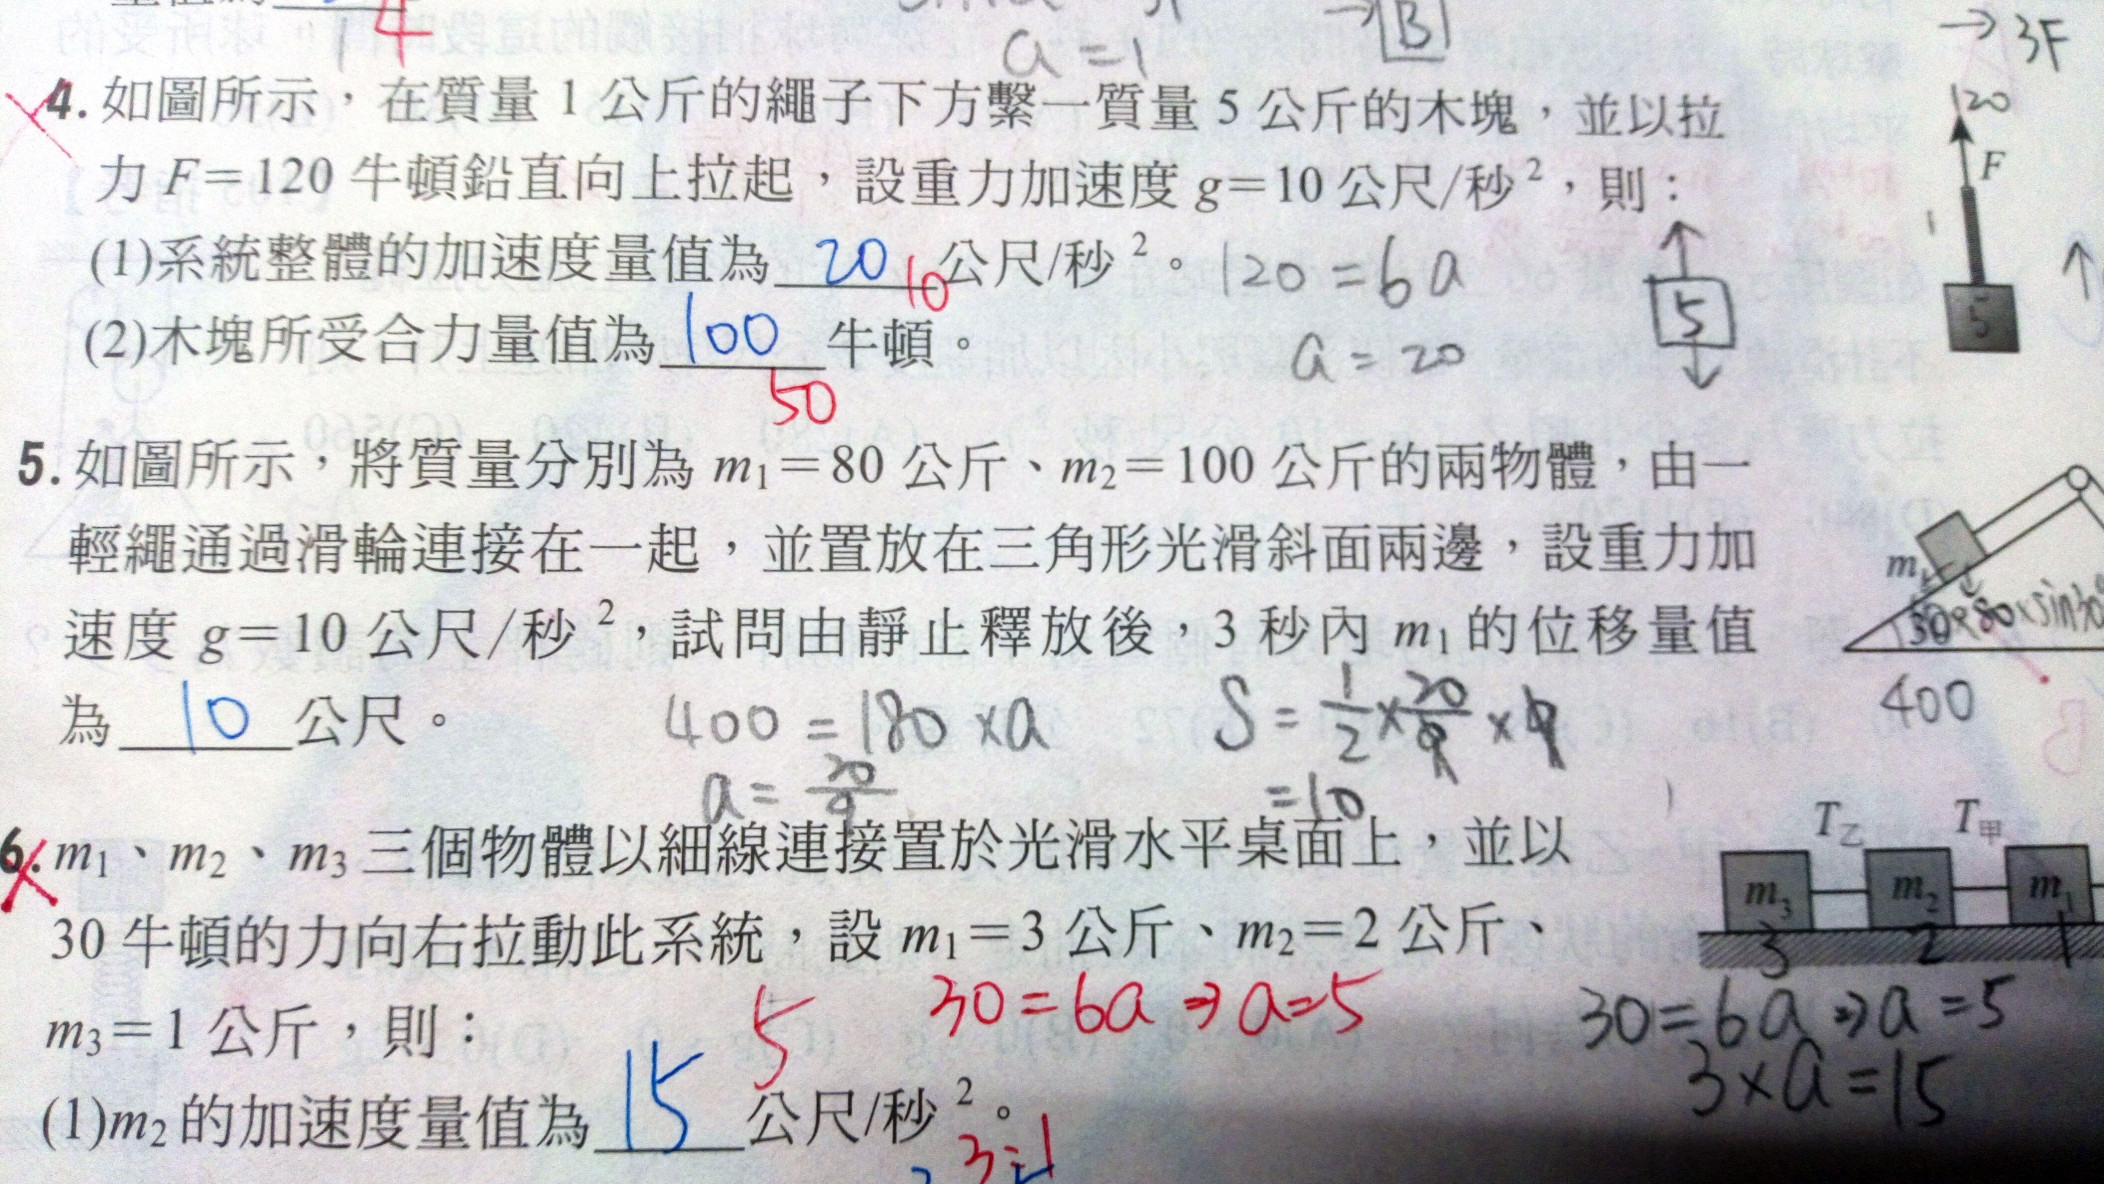 4
a=1
→ B
→ 3F
4. 如圖所示，在質量 1 公斤的繩子下方繫一質量 5 公斤的木塊，並以拉
力 F=120 牛頓鉛直向上拉起，設重力加速度 g=10 公尺/秒²，則：
120
F
5
(1)系統整體的加速度量值為 20 10 公尺/秒²。 120=6a
5
(2)木塊所受合力量值為 100 牛頓。 a=20
50
5. 如圖所示，將質量分別為 m₁=80 公斤、m₂=100 公斤的兩物體，由一
輕繩通過滑輪連接在一起，並置放在三角形光滑斜面兩邊，設重力加
速度 g=10 公尺/秒²，試問由靜止釋放後，3 秒內 m₁ 的位移量值
為 10 公尺。 400=180×a S=1/2×20/9×9
a=20/9 =10
m₁
400
6. m₁、m₂、m₃ 三個物體以細線連接置於光滑水平桌面上，並以
T乙 T甲
m₃ m₂ m₁
3 2 1
30 牛頓的力向右拉動此系統，設 m₁=3 公斤、m₂=2 公斤、
m₃=1 公斤，則： 5 30=6a⇒a=5
30=6a⇒a=5
3×a=15
(1)m₂的加速度量值為 15 公尺/秒²。